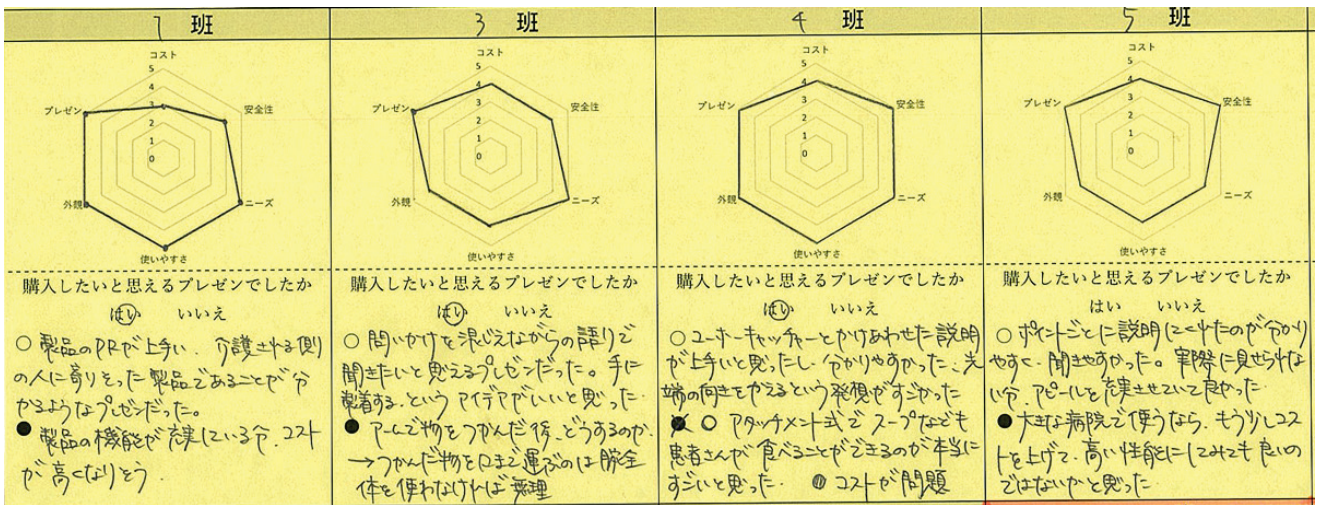 1 班
コスト
5
4
3
2
1
0
プレゼン
安全性
外観
ニーズ
使いやすさ
購入したいと思えるプレゼンでしたか
はい いいえ
○ 製品のPRが上手い、介護される側
の人に寄りそった製品であることが分
かるようなプレゼンだった。
● 製品の機能が充実している分、コスト
が高くなりそう
3 班
コスト
5
4
3
2
1
0
プレゼン
安全性
外観
ニーズ
使いやすさ
購入したいと思えるプレゼンでしたか
はい いいえ
○ 問いかけを混じえながらの語りで
聞きたいと思えるプレゼンだった。手に
装着する、というアイデアがいいと思った。
● アームで物をつかんだ後、どうするのか。
→つかんだ物を口まで運ぶのは腕全
体を使わなければ無理
4 班
コスト
5
4
3
2
1
0
プレゼン
安全性
外観
ニーズ
使いやすさ
購入したいと思えるプレゼンでしたか
はい いいえ
○ユーザーキャッチャーとかけあわせた説明
が上手いと思ったし、分かりやすかった、先
端の向きをかえるという発想がすごかった
○ アタッチメント式でスープなども
患者さんが食べることができるのが本当に
すごいと思った。 ● コストが問題
5 班
コスト
5
4
3
2
1
0
プレゼン
安全性
外観
ニーズ
使いやすさ
購入したいと思えるプレゼンでしたか
はい いいえ
○ ポイントごとに説明してくれたのが分かり
やすく、聞きやすかった。実際に見せられな
い分、アピールを充実させていて良かった
● 大きな病院で使うなら、もう少しコス
トを上げて、高い性能にしてみても良いの
ではないかと思った